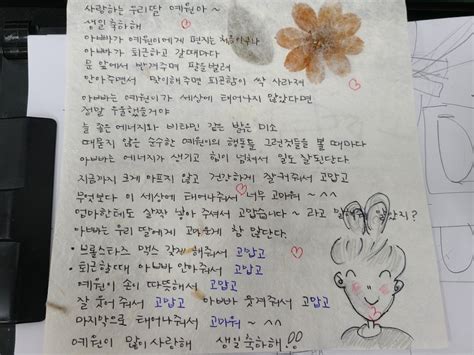 사랑하는 우리딸 예원아~
생일 축하해
아빠가 예원이에게 편지는 처음이구나
아빠가 퇴근하고 갈때마다
문 앞에서 반겨주며 팔을벌려
안아주면서 맞이해주면 피곤함이 싹 사라져
아빠는 예원이가 세상에 태어나지 않았다면
정말 우울했을거야
늘 좋은 에너지와 비타민 같은 밝은 미소
때묻지 않은 순수한 예원이의 행동들 그런것들을 볼 때마다
아빠는 에너지가 생기고 힘이 넘쳐서 일도 잘된단다
지금까지 크게 아프지 않고 건강하게 잘커줘서 고맙고
무엇보다 이 세상에 태어나줘서 너무 고마워~^^
엄마한테도 살짝 낳아 주셔서 고맙습니다~ 라고 말해줘 알았지?
아빠는 우리 딸에게 고마운게 참 많단다.
· 브롤스타즈 맥스 갖게 해줘서 고맙고
· 퇴근할때 아빠빠 안아줘서 고맙고
예원이 손이 따뜻해서 고맙고
잘 웃어줘서 고맙고 아빠가 웃게줘서 고맙고
마지막으로 태어나줘서 고마워~^^
예원이 많이 사랑해 생일축하해!!